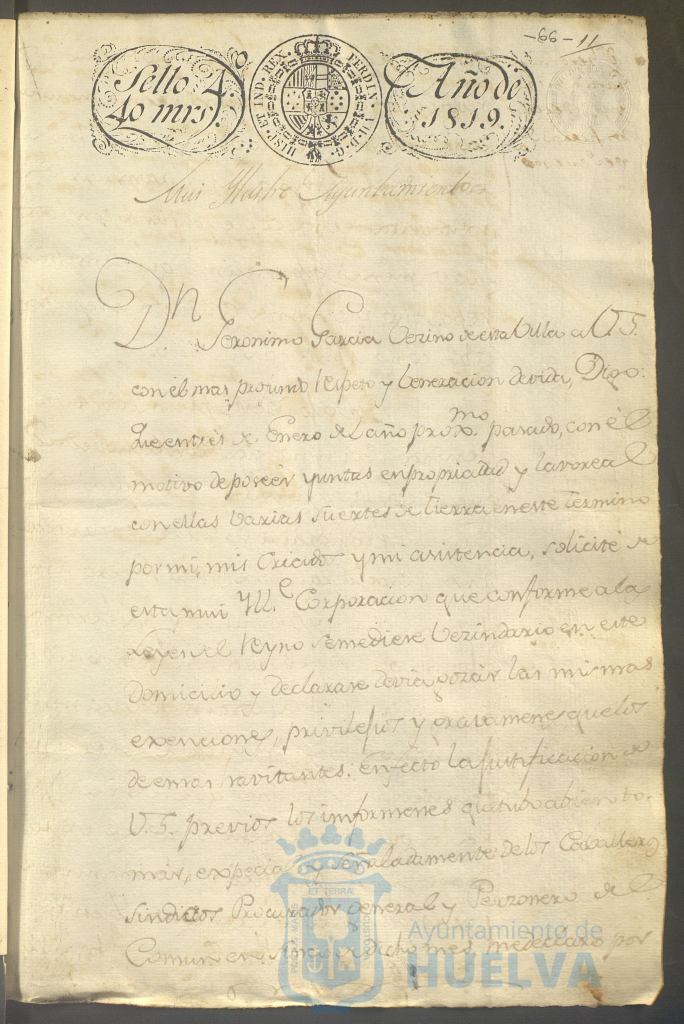 -66-11
Sello 4.
40 mrs.
HISP. ET IND. REX. FERDIN. VII. D. G.
Año de
1819.
Mui Ylustre Ayuntamiento
Dn Geronimo Garcia Vezino de esta Villa a V.S.
con el mas profundo respeto y beneracion devida, Digo:
Que en tres de Enero del año proxmo. pasado, con el
motivo de poseer yuntas en propriedad y lavorear
con ellas varias suertes de tierra en este termino
por mi, mis Criados y mi asistencia, solicité de
esta mui Yll.e Corporacion que conforme a la
Leyes del Reyno se me diese Vezindario en este
domicilio y declarase devia gozar las mismas
exenciones, privilejios y gravamenes que los
demas havitantes: en efecto la justificacion de
V.S. previos los informenes que tubo a bien to-
mar, especial y señaladamente de los Caballeros
sindicos Procurador general y Personero del
Comun en dicho mes me declaro por
Ayuntamiento de
HUELVA